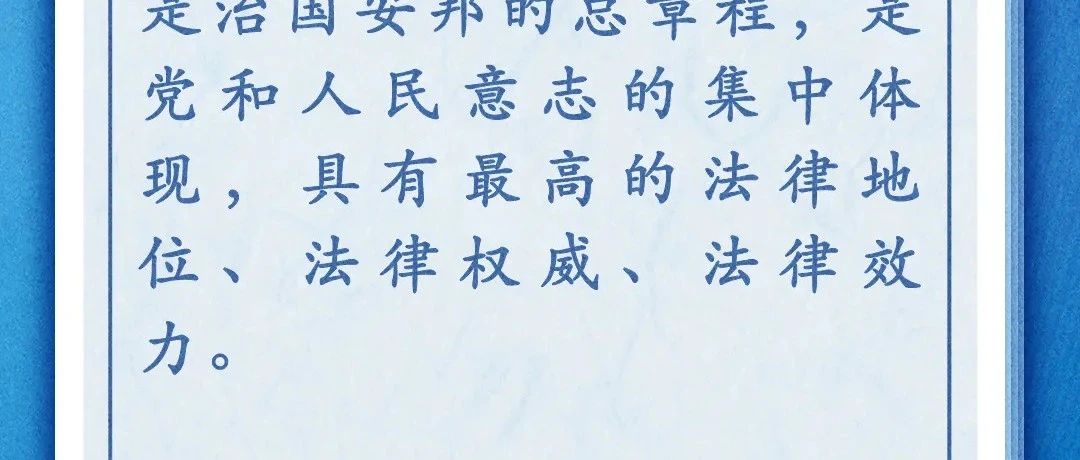 是治国安邦的总章程，是
党和人民意志的集中体
现，具有最高的法律地
位、法律权威、法律效
力。